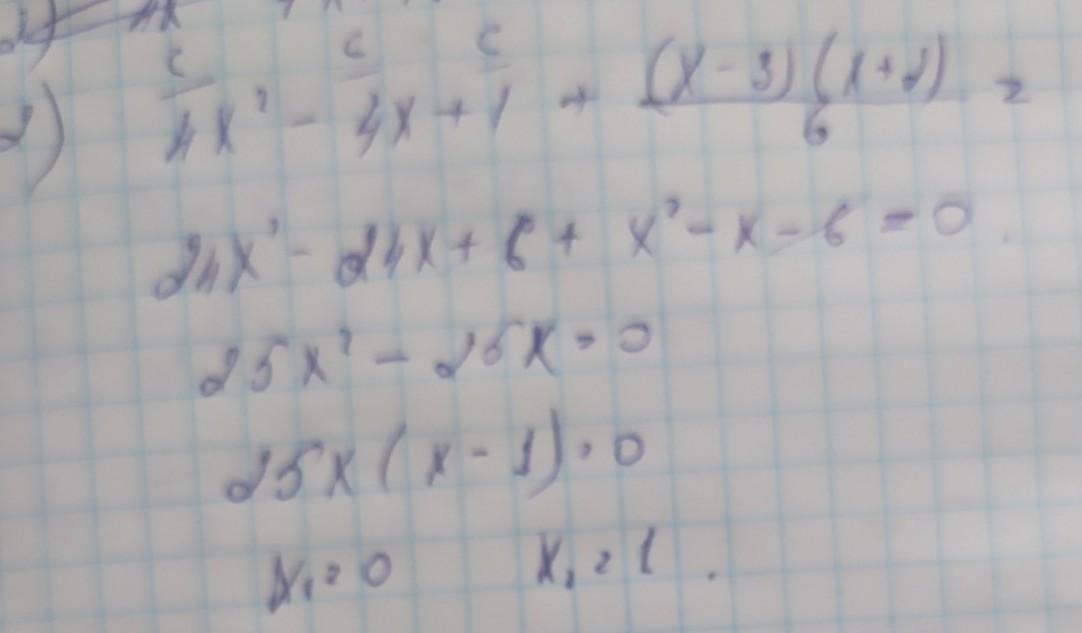 2) 4x² - 4x + 1 + (x-3)(x+2)/6 =
24x² - 24x + 6 + x² - x - 6 = 0.
25x² - 25x = 0
25x(x-1) = 0
x₁ = 0 x₁ = 1.